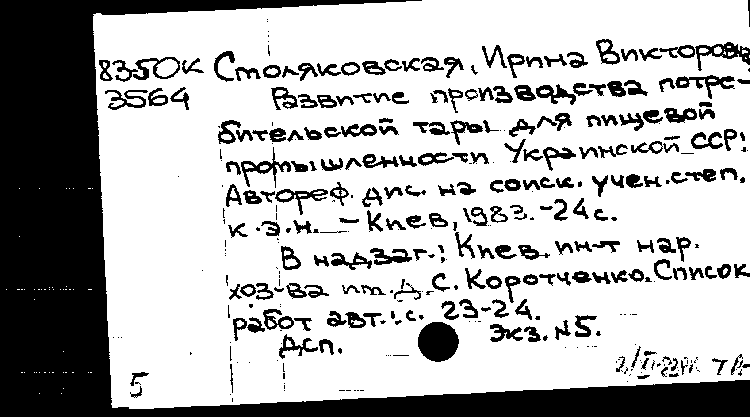 8350К Столяковская, Ирина Викторовна
3564 Развитие производства потре-
бительской тары для пищевой
промышленности Украинской ССР:
Автореф. дис. на соиск. учен. степ.
к.э.н. - Киев, 1983. - 24 с.
В надзаг.: Киев. ин-т нар.
хоз-ва им. Д.С. Коротченко. Список
работ авт.: с. 23-24.
Дсп. Экз. №5.
5